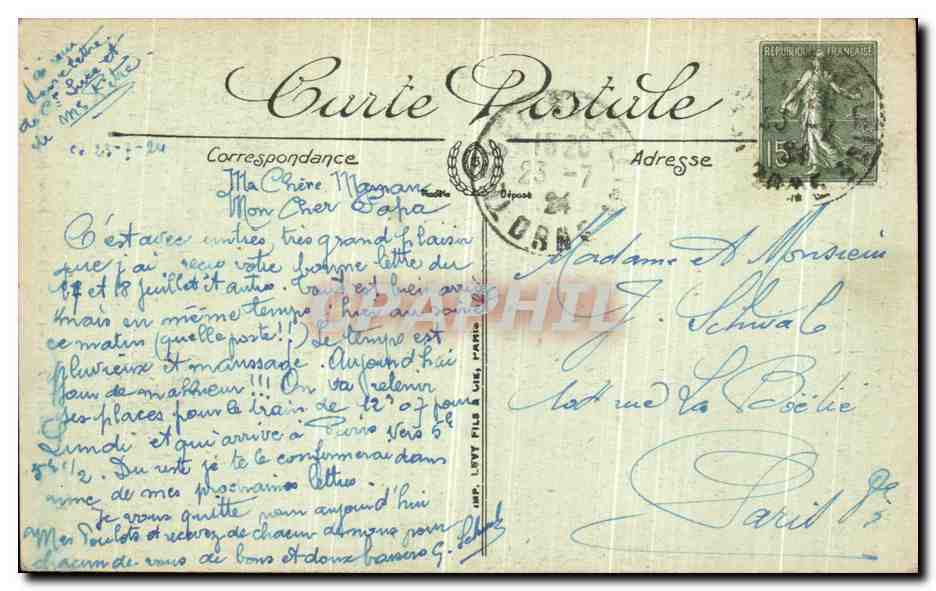 J'ai reçu
lettre
de Suze et
de
ce 23-7-24
Carte Postale
Correspondance
Adresse
RÉPUBLIQUE FRANÇAISE
15
15 20
23 -7
24
ORNE
Marque Déposé
Ma Chère Maman
Mon Cher Papa
C'est avec un très, très grand plaisir
que j'ai reçu votre bonne lettre du
17 et 18 juillet et autres. Tout est bien arrivé
mais en même temps, hier au soir
ce matin (quelle poste!!) Le temps est
pluvieux et maussage. Aujourd'hui
jour de malheur!!! On va retenir
les places pour le train de 12h07 pour
Lundi et qui arrive à Paris vers 5h
5h 1/2. Du reste je te le confirmerai dans
une de mes prochaines lettres.
Je vous quitte pour aujourd'hui
mes Poulots et recevez de chacun de nous pour
chacun de vous de bons et doux baisers G. Schwab
IMP. LEVY FILS & CIE, PARIS
Madame et Monsieur
J. Schwab
rue La Boëtie
Paris 8e
CPAPHIL